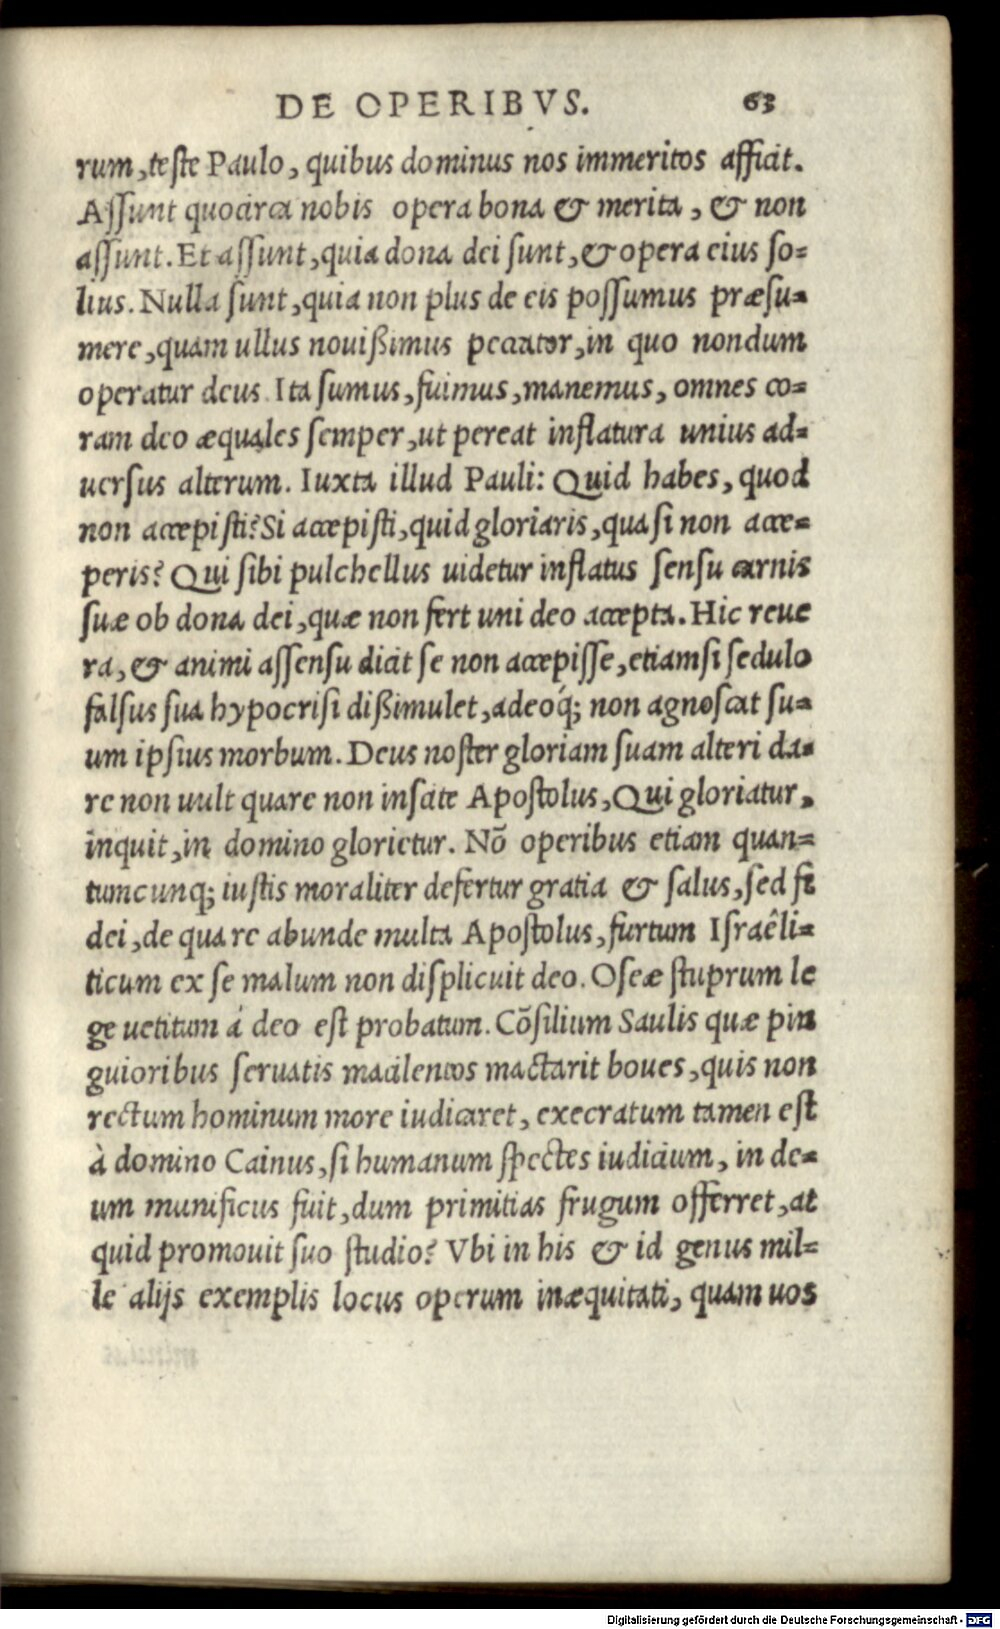 DE OPERIBVS. 63
rum, teste Paulo, quibus dominus nos immeritos afficit.
Assunt quocirca nobis opera bona & merita, & non
assunt. Et assunt, quia dona dei sunt, & opera eius so-
lius. Nulla sunt, quia non plus de eis possumus præsu-
mere, quam ullus nouißimus peccator, in quo nondum
operatur deus. Ita sumus, fuimus, manemus, omnes co-
ram deo æquales semper, ut pereat inflatura unius ad-
uersus alterum. Iuxta illud Pauli: Quid habes, quod
non accepisti? Si accepisti, quid gloriaris, quasi non acce-
peris? Qui sibi pulchellus uidetur inflatus sensu carnis
suæ ob dona dei, quæ non fert uni deo accepta. Hic reue
ra, & animi assensu dicit se non accepisse, etiamsi sedulo
falsus sua hypocrisi dißimulet, adeóq; non agnoscat su-
um ipsius morbum. Deus noster gloriam suam alteri da-
re non uult quare non inscite Apostolus, Qui gloriatur,
inquit, in domino glorietur. Nō operibus etiam quan-
tumcunq; iustis moraliter defertur gratia & salus, sed fi
dei, de qua re abunde multa Apostolus, furtum Israêli-
ticum ex se malum non displicuit deo. Oseæ stuprum le
ge uetitum á deo est probatum. Cōsilium Saulis quæ pin
guioribus seruatis macilentos mactarit boues, quis non
rectum hominum more iudicaret, execratum tamen est
à domino Cainus, si humanum spectes iudicium, in de-
um munificus fuit, dum primitias frugum offerret, at
quid promouit suo studio? Vbi in his & id genus mil-
le alijs exemplis locus operum inæquitati, quam uos
Digitalisierung gefördert durch die Deutsche Forschungsgemeinschaft - DFG